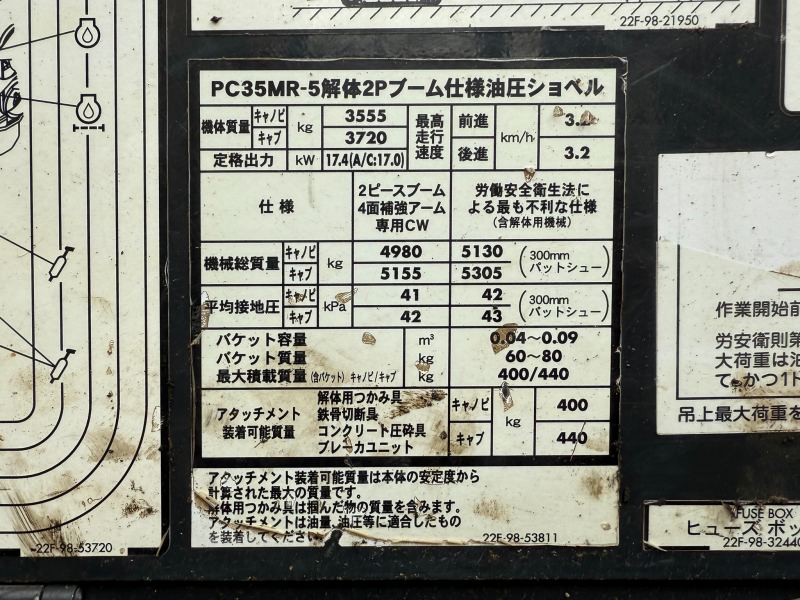 22F-98-21950
PC35MR-5解体2Pブーム仕様油圧ショベル
機体質量 キャノピ kg 3555 最高走行速度 前進 km/h
キャブ 3720
定格出力 kW 17.4(A/C:17.0) 後進 3.2
仕様 2ピースブーム 4面補強アーム 専用CW 労働安全衛生法に よる最も不利な仕様 (含解体用機械)
機械総質量 キャノピ kg 4980 5130 (300mm パットシュー)
キャブ 5155 5305
平均接地圧 キャノピ kPa 41 42 (300mm パットシュー)
キャブ 42 43
バケット容量 m³ 0.04〜0.09
バケット質量 kg 60〜80
最大積載質量 (含バケット) キャノピ/キャブ kg 400/440
アタッチメント 装着可能質量 解体用つかみ具 鉄骨切断具 コンクリート圧砕具 ブレーカユニット キャノピ kg 400
キャブ 440
アタッチメント装着可能質量は本体の安定度から
計算された最大の質量です。
解体用つかみ具は掴んだ物の質量を含みます。
アタッチメントは油量、油圧等に適合したもの
を装着してください。
22F-98-53811
22F-98-53720
作業開始前
労安衛則第
大荷重は油
て、かつ1ト
吊上最大荷重を
FUSE BOX
ヒューズ ボッ
22F-98-32440